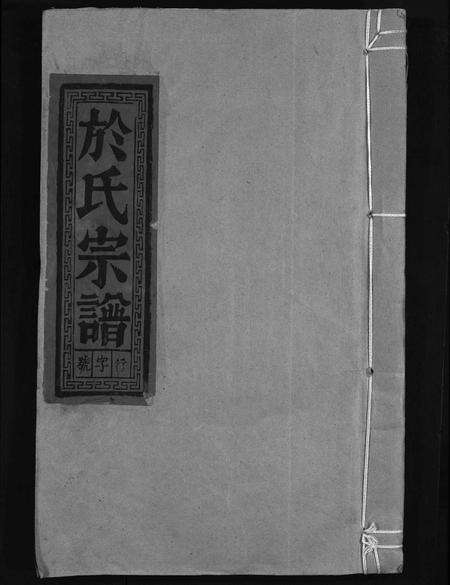 於氏宗譜
行字號